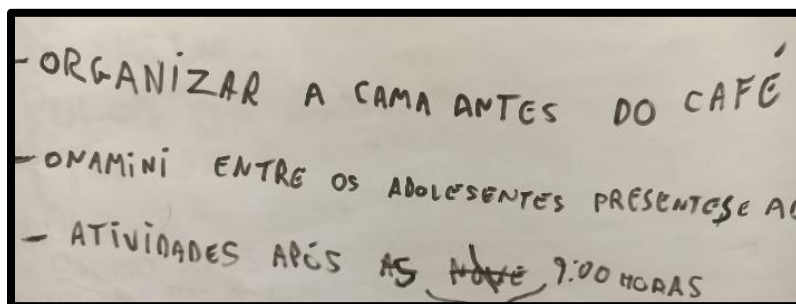 - ORGANIZAR A CAMA ANTES DO CAFÉ
- ONAMINI ENTRE OS ADOLESENTES PRESENTES E
- ATIVIDADES APÓS AS NOVE 9:00 HORAS